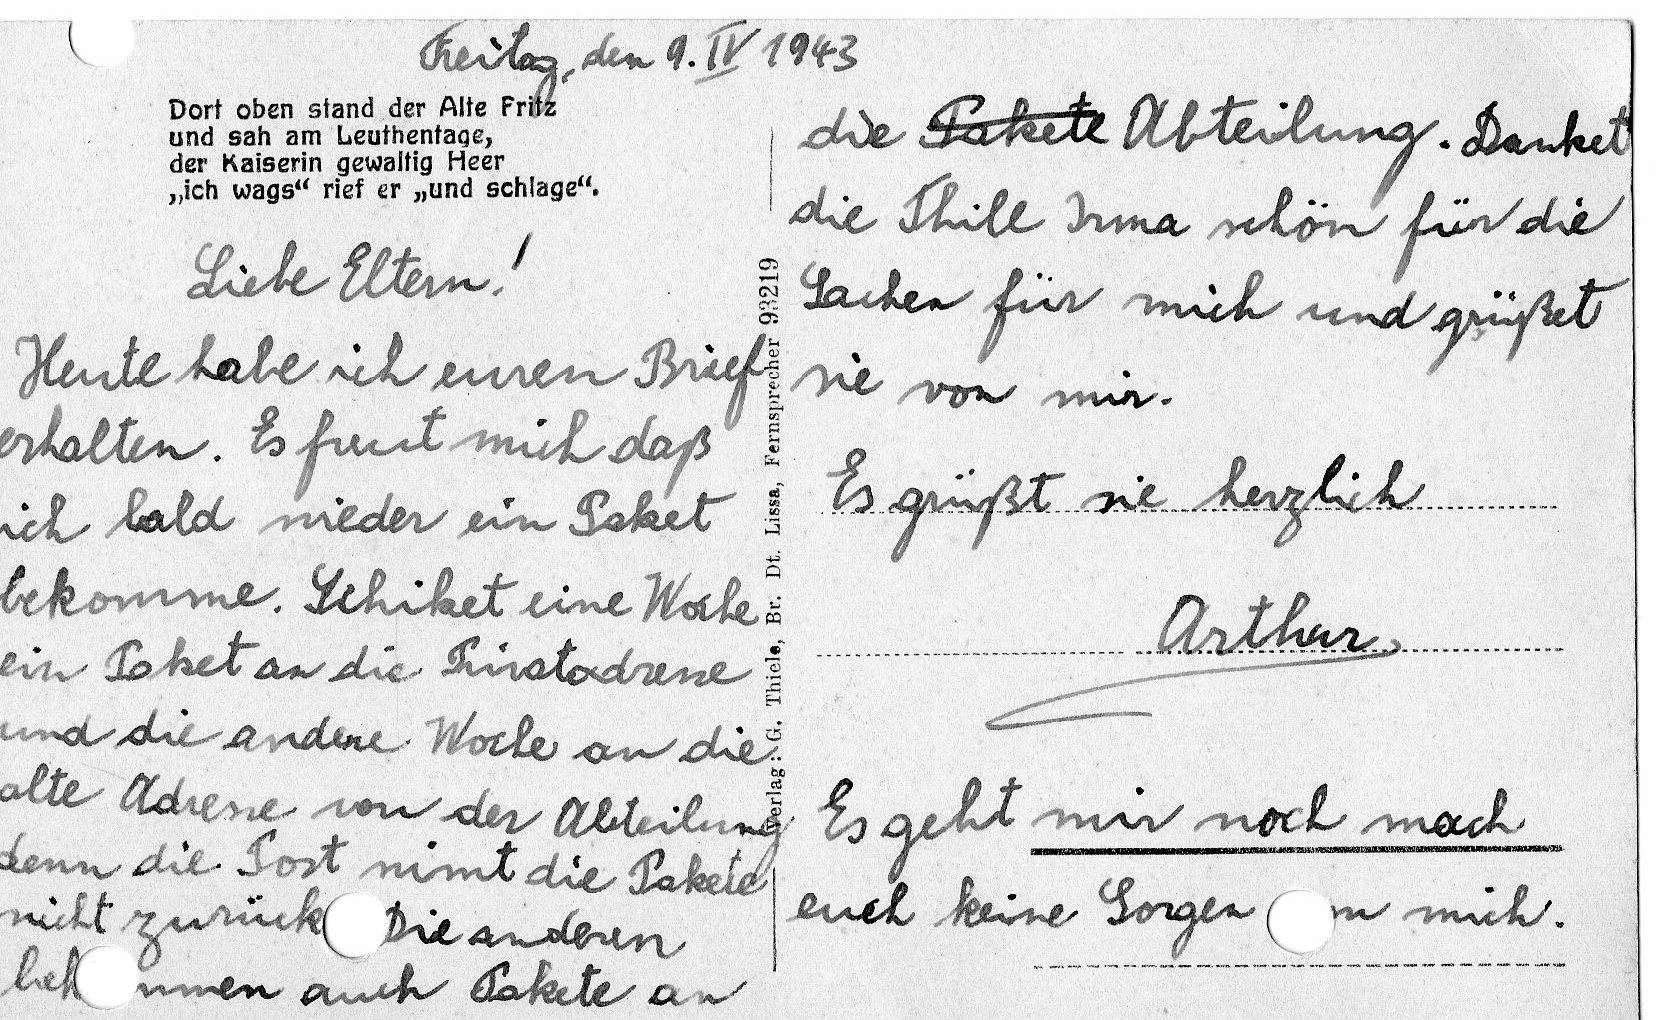 Freitag, den 9. IV 1943
Dort oben stand der Alte Fritz
und sah am Leuthentage,
der Kaiserin gewaltig Heer
„ich wags“ rief er „und schlage“.
Liebe Eltern!
Heute habe ich euren Brief
erhalten. Es freut mich daß
ich bald wieder ein Paket
bekomme. Schiket eine Woche
ein Paket an die Privatadresse
und die andere Woche an die
alte Adresse von der Abteilung
denn die Post nimt die Pakete
nicht zurück Die anderen
bek mmen auch Pakete an
Verlag: G. Thiele, Br. Dt. Lissa, Fernsprecher 93219
die Pakete Abteilung. Danket
die Thill Irma schön für die
Sachen für mich und grüßet
sie von mir.
Es grüßt sie herzlich
Arthur
Es geht mir noch mach
euch keine Sorgen m mich.